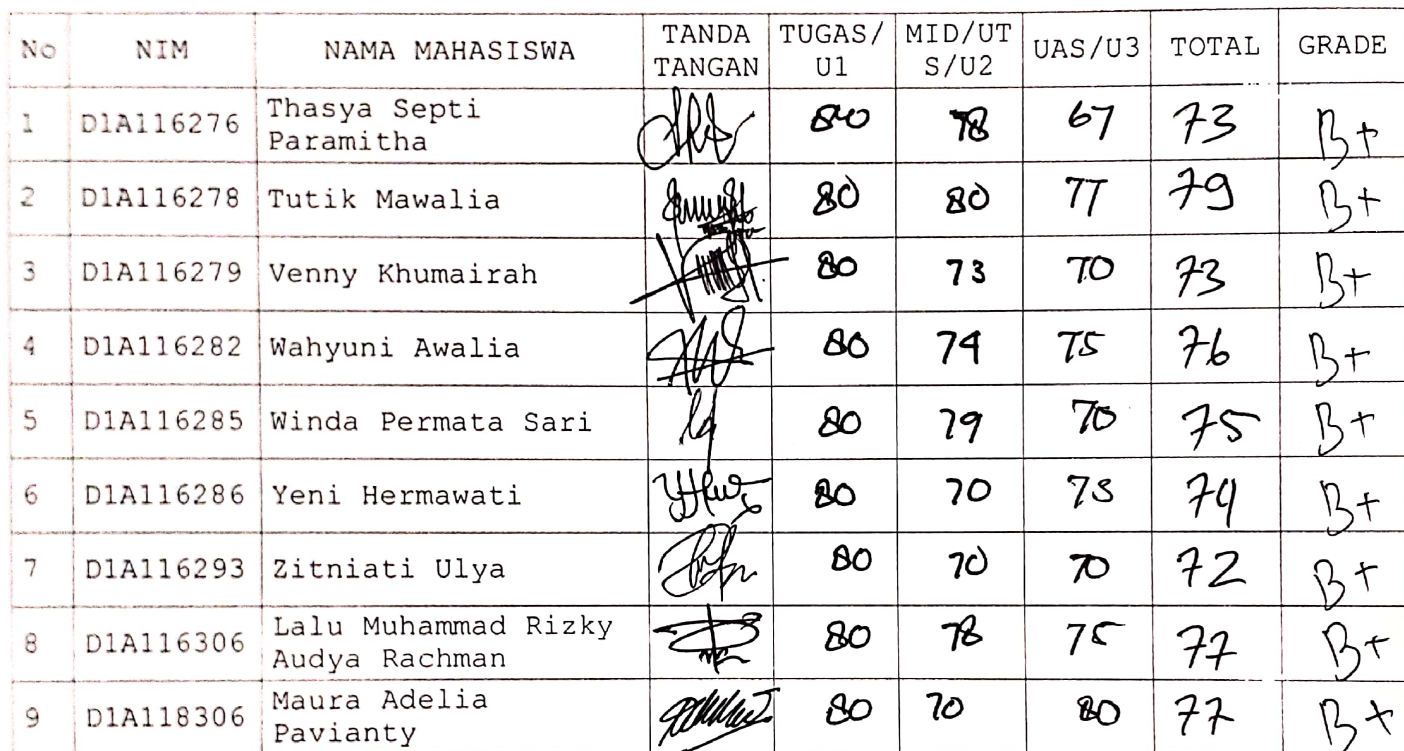 No NIM NAMA MAHASISWA TANDA TANGAN TUGAS/U1 MID/UTS/U2 UAS/U3 TOTAL GRADE
1 D1A116276 Thasya Septi Paramitha 80 78 67 73 B+
2 D1A116278 Tutik Mawalia 80 80 77 79 B+
3 D1A116279 Venny Khumairah 80 73 70 73 B+
4 D1A116282 Wahyuni Awalia 80 74 75 76 B+
5 D1A116285 Winda Permata Sari 80 79 70 75 B+
6 D1A116286 Yeni Hermawati 80 70 75 74 B+
7 D1A116293 Zitniati Ulya 80 70 70 72 B+
8 D1A116306 Lalu Muhammad Rizky Audya Rachman 80 78 75 77 B+
9 D1A118306 Maura Adelia Pavianty 80 70 80 77 B+